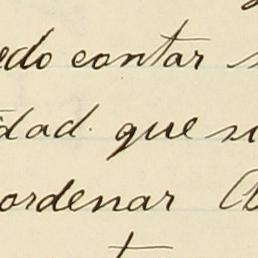 edo contar
idad. que su
ordenar